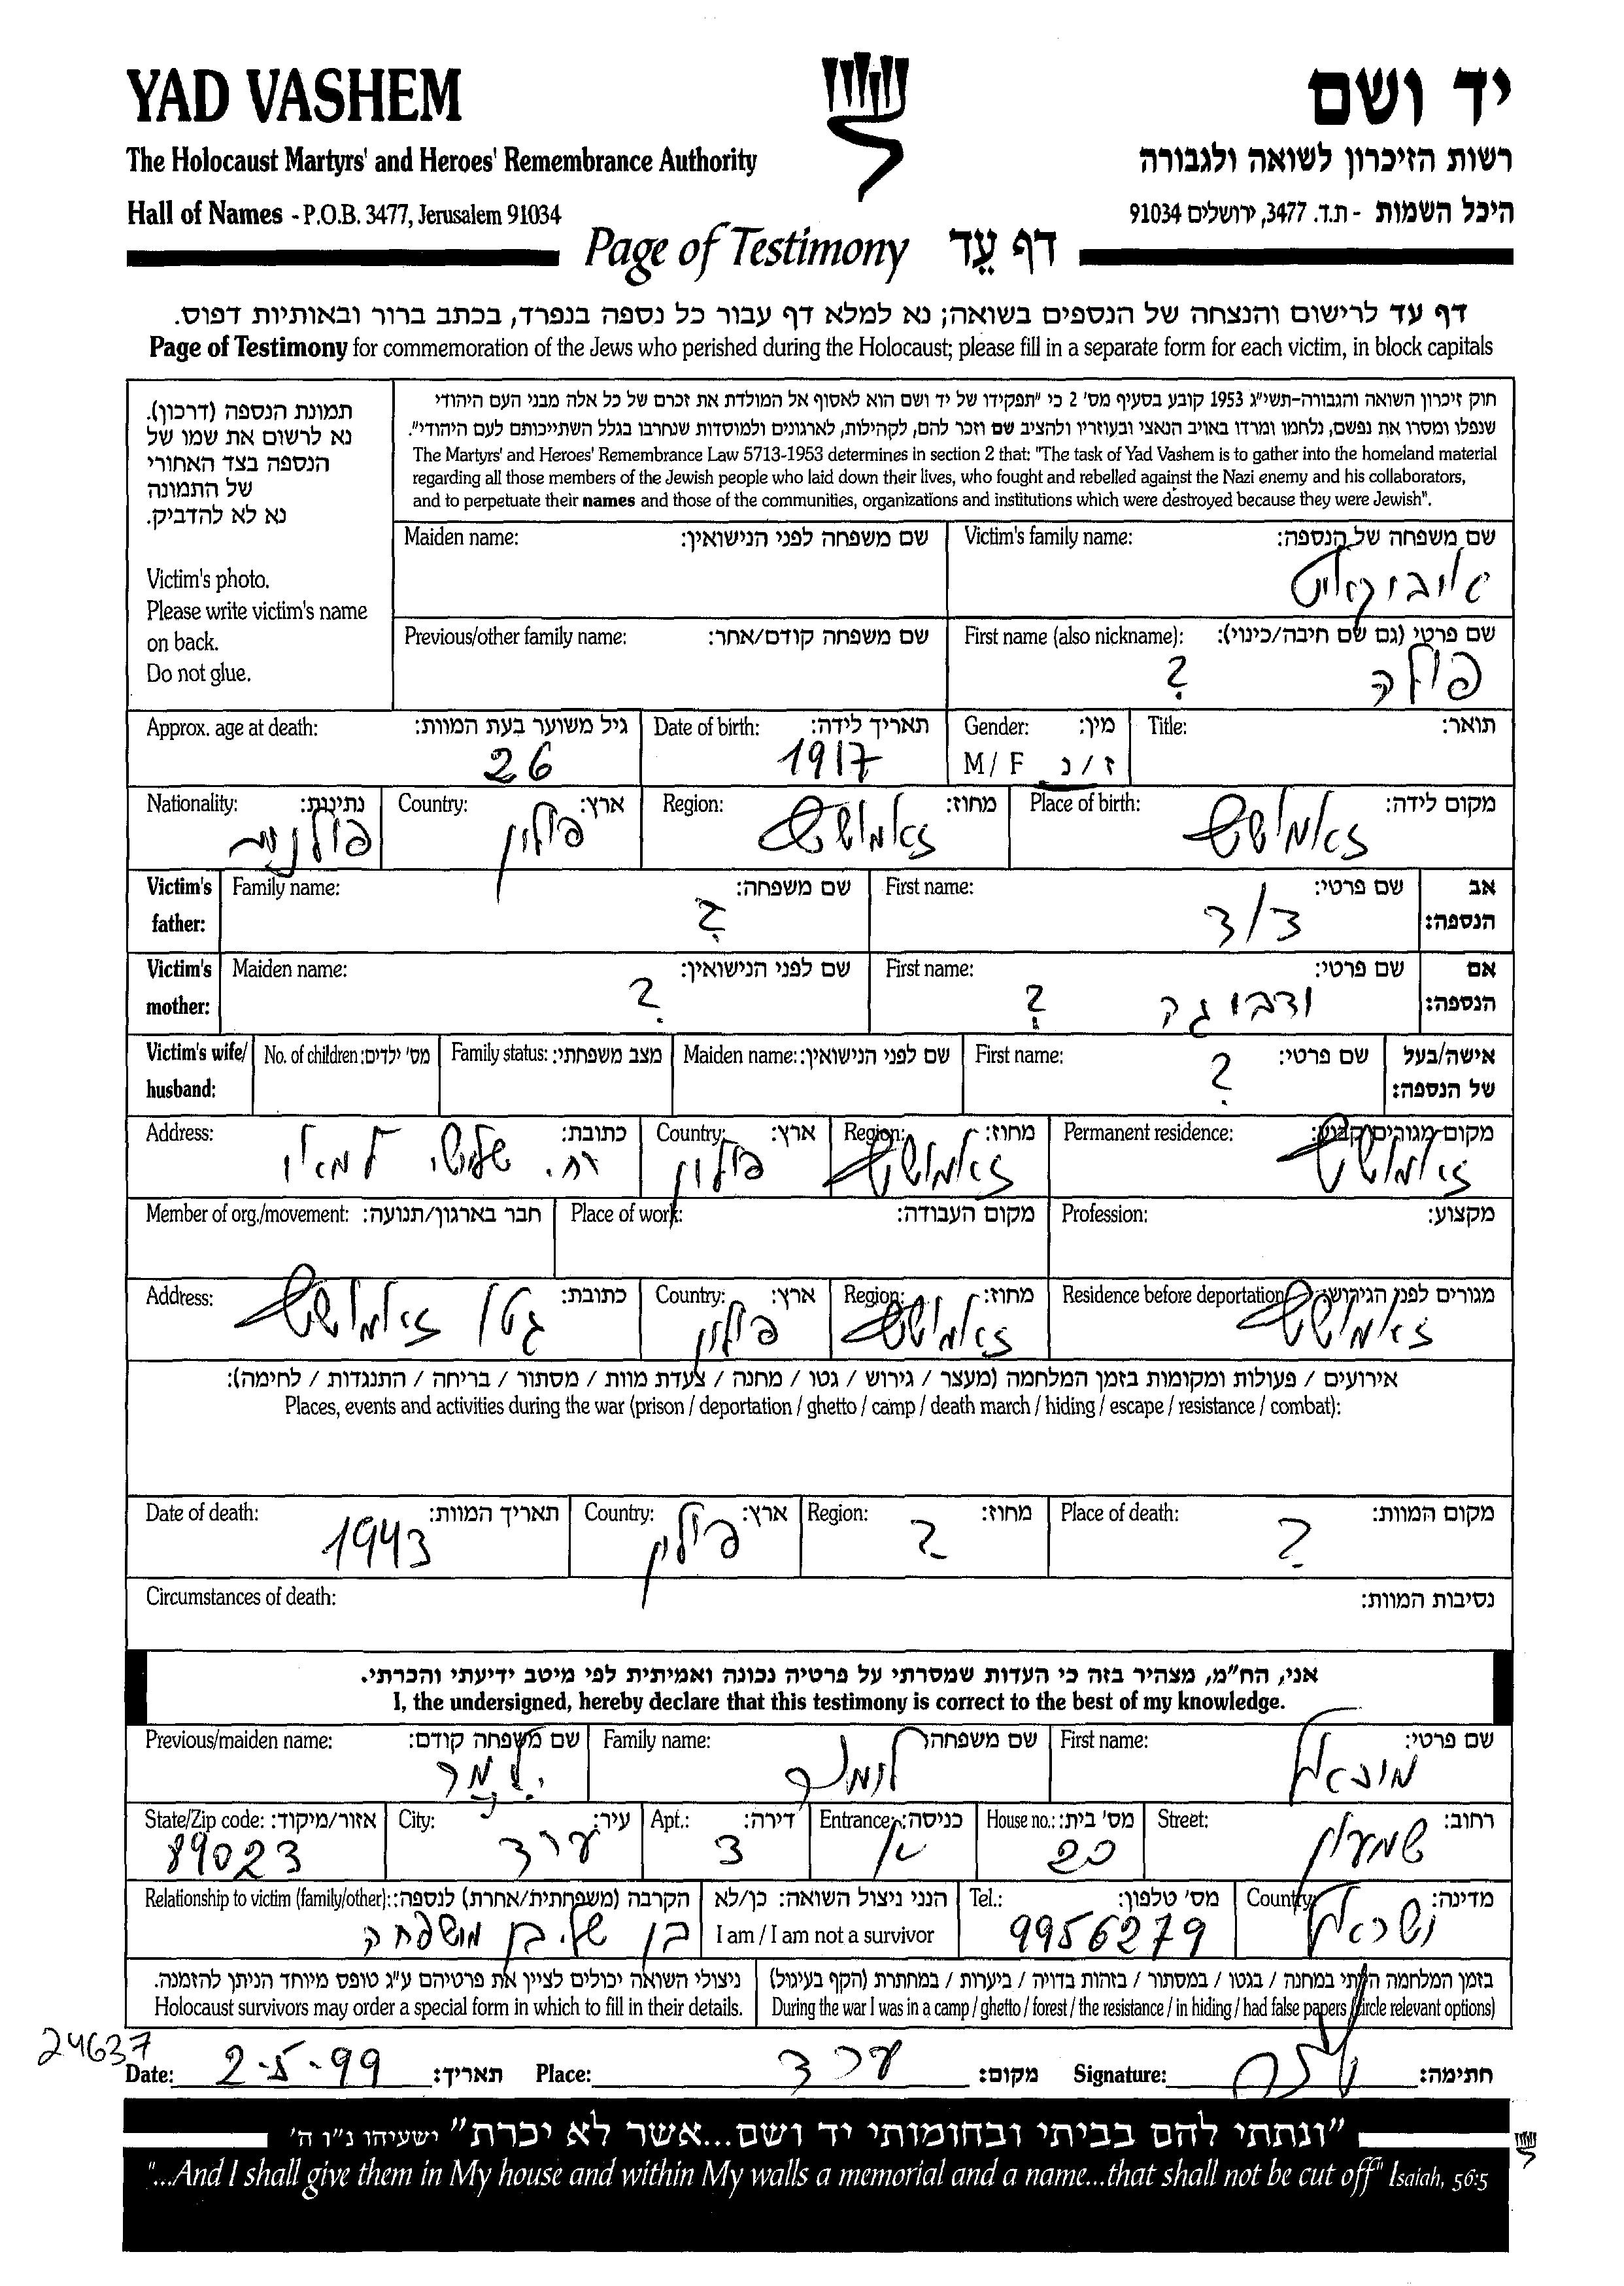 YAD VASHEM
יד ושם
The Holocaust Martyrs' and Heroes' Remembrance Authority
רשות הזיכרון לשואה ולגבורה
Hall of Names - P.O.B. 3477, Jerusalem 91034
היכל השמות - ת.ד. 3477, ירושלים 91034
Page of Testimony דף עֵד
דף עד לרישום והנצחה של הנספים בשואה; נא למלא דף עבור כל נספה בנפרד, בכתב ברור ובאותיות דפוס.
Page of Testimony for commemoration of the Jews who perished during the Holocaust; please fill in a separate form for each victim, in block capitals
תמונת הנספה (דרכון).
נא לרשום את שמו של
הנספה בצד האחורי
של התמונה
נא לא להדביק.
Victim's photo.
Please write victim's name
on back.
Do not glue.
חוק זיכרון השואה והגבורה-תשי"ג 1953 קובע בסעיף מס' 2 כי "תפקידו של יד ושם הוא לאסוף אל המולדת את זכרם של כל אלה מבני העם היהודי
שנפלו ומסרו את נפשם, נלחמו ומרדו באויב הנאצי ובעוזריו ולהציב שם וזכר להם, לקהילות, לארגונים ולמוסדות שנחרבו בגלל השתייכותם לעם היהודי".
The Martyrs' and Heroes' Remembrance Law 5713-1953 determines in section 2 that: "The task of Yad Vashem is to gather into the homeland material
regarding all those members of the Jewish people who laid down their lives, who fought and rebelled against the Nazi enemy and his collaborators,
and to perpetuate their names and those of the communities, organizations and institutions which were destroyed because they were Jewish".
Maiden name: שם משפחה לפני הנישואין:
Victim's family name: שם משפחה של הנספה:
Previous/other family name: שם משפחה קודם/אחר:
First name (also nickname): שם פרטי (גם שם חיבה/כינוי):
פולה ?
Approx. age at death: גיל משוער בעת המוות:
26
Date of birth: תאריך לידה:
1917
Gender: מין:
M / F ז / נ
Title: תואר:
Nationality: נתינות:
פולנית
Country: ארץ:
פולין
Region: מחוז:
זאמושש
Place of birth: מקום לידה:
זאמושש
Victim's father: Family name: שם משפחה:
?
First name: שם פרטי:
אב הנספה:
Victim's mother: Maiden name: שם לפני הנישואין:
?
First name: שם פרטי:
?
אם הנספה:
Victim's wife/ husband: No. of children: מס' ילדים:
Family status: מצב משפחתי:
Maiden name: שם לפני הנישואין:
First name: שם פרטי:
?
אישה/בעל של הנספה:
Address: כתובת:
רח.
Country: ארץ:
פולין
Region: מחוז:
זאמושש
Permanent residence: מקום מגורים קבוע:
זאמושש
Member of org./movement: חבר בארגון/תנועה:
Place of work: מקום העבודה:
Profession: מקצוע:
Address: כתובת:
גטו זאמושש
Country: ארץ:
פולין
Region: מחוז:
זאמושש
Residence before deportation: מגורים לפני הגירוש:
זאמושש
אירועים / פעולות ומקומות בזמן המלחמה (מעצר / גירוש / גטו / מחנה / צעדת מוות / מסתור / בריחה / התנגדות / לחימה):
Places, events and activities during the war (prison / deportation / ghetto / camp / death march / hiding / escape / resistance / combat):
Date of death: תאריך המוות:
1943
Country: ארץ:
פולין
Region: מחוז:
?
Place of death: מקום המוות:
?
Circumstances of death: נסיבות המוות:
אני, הח"מ, מצהיר בזה כי העדות שמסרתי על פרטיה נכונה ואמיתית לפי מיטב ידיעתי והכרתי.
I, the undersigned, hereby declare that this testimony is correct to the best of my knowledge.
Previous/maiden name: שם משפחה קודם:
Family name: שם משפחה:
First name: שם פרטי:
State/Zip code: אזור/מיקוד:
89023
City: עיר:
ערד
Apt.: דירה:
3
Entrance: כניסה:
א
House no.: מס' בית:
20
Street: רחוב:
שמעון
Relationship to victim (family/other): הקרבה (משפחתית/אחרת) לנספה:
בן של בן משפחה
הנני ניצול השואה: כן/לא
I am / I am not a survivor
Tel.: מס' טלפון:
9956279
Country: מדינה:
ישראל
ניצולי השואה יכולים לציין את פרטיהם ע"ג טופס מיוחד הניתן להזמנה.
Holocaust survivors may order a special form in which to fill in their details.
בזמן המלחמה הייתי במחנה / בגטו / במסתור / בזהות בדויה / ביערות / במחתרת (הקף בעיגול)
During the war I was in a camp / ghetto / forest / the resistance / in hiding / had false papers (circle relevant options)
24637
Date: 2-5-99 תאריך: Place: ערד מקום: Signature: חתימה:
"ונתתי להם בביתי ובחומותי יד ושם...אשר לא יכרת" ישעיהו נ"ו ה'
"...And I shall give them in My house and within My walls a memorial and a name...that shall not be cut off" Isaiah, 56:5